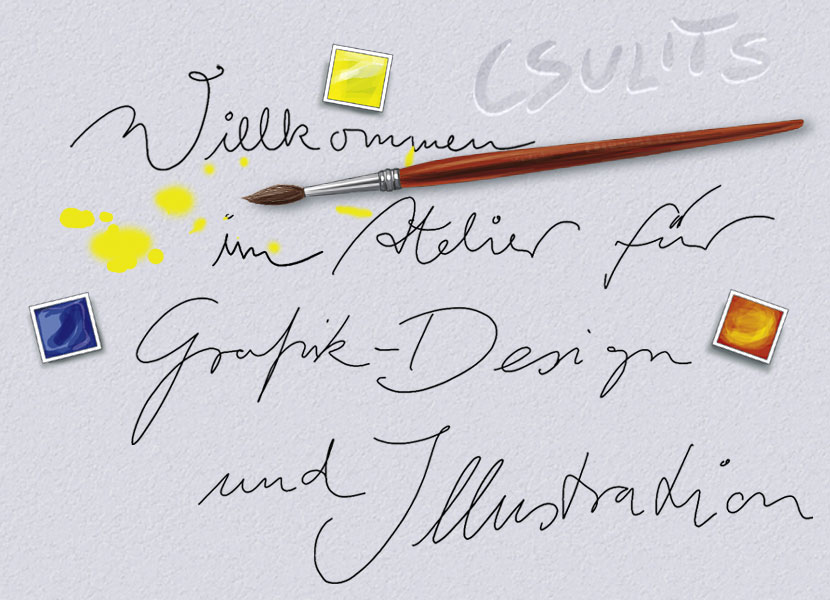 CSULITS
Willkommen
im Atelier für
Grafik-Design
und Illustration